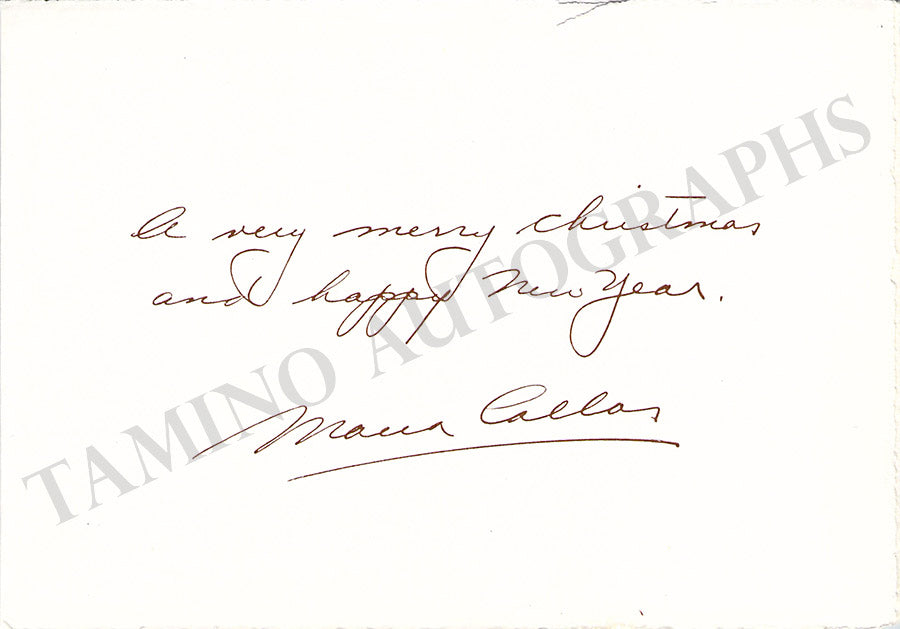 A very merry christmas
and happy New Year.
Maria Callas
TAMINO AUTOGRAPHS